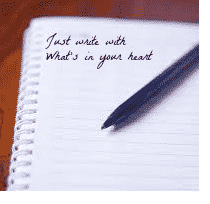 Just write with
What's in your heart